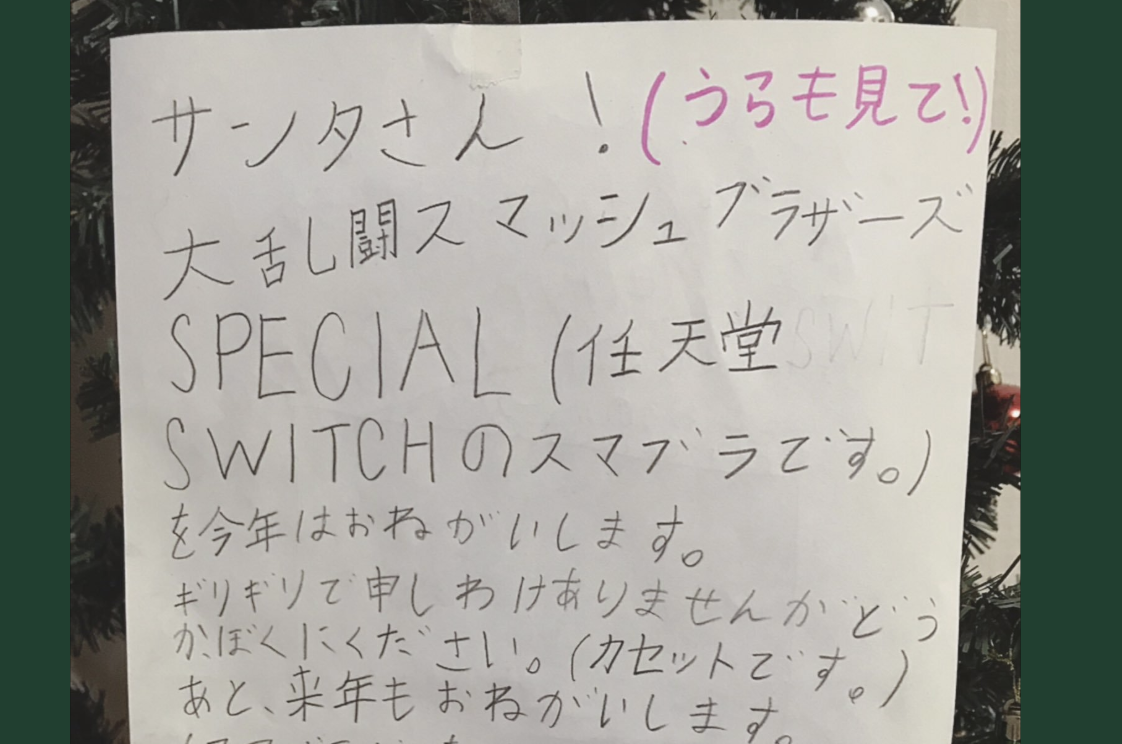 サンタさん！(うらも見て！)
大乱闘スマッシュブラザーズ
SPECIAL (任天堂
SWITCHのスマブラです。)
を今年はおねがいします。
ギリギリで申しわけありませんがどう
かぼくにください。(カセットです。)
あと、来年もおねがいします。